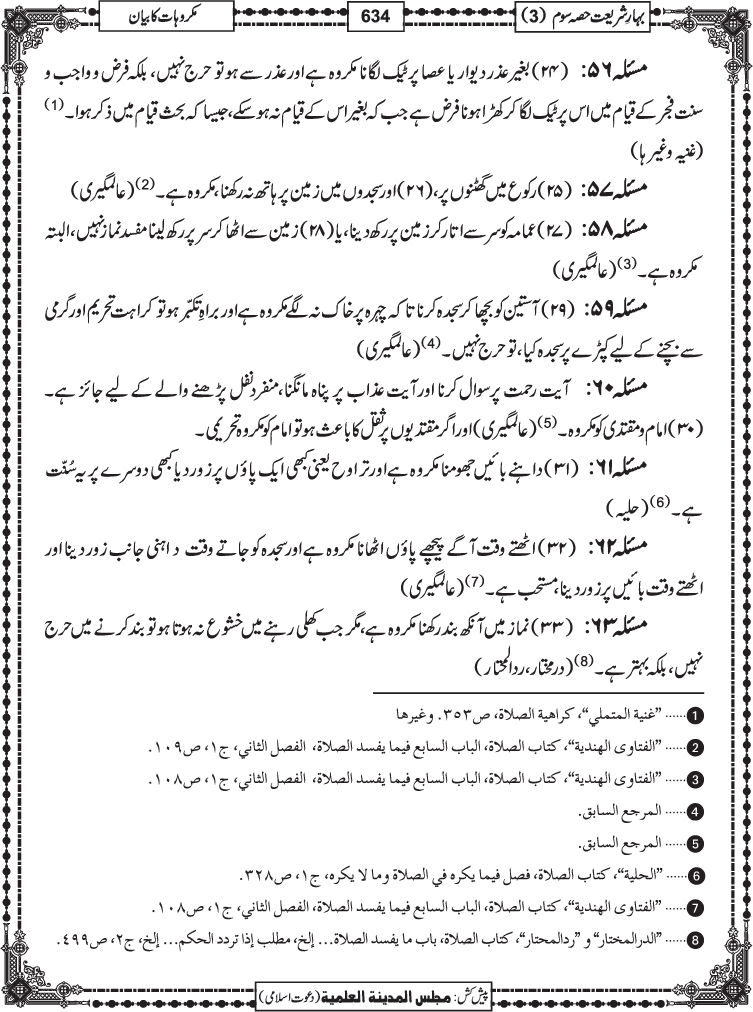 بہارِ شریعت حصہ سوم (3)
634
مکروہات کا بیان
مسئلہ ۵۶: (۲۴) بغیر عذر دیوار یا عصا پر ٹیک لگانا مکروہ ہے اور عذر سے ہو تو حرج نہیں، بلکہ فرض و واجب و
سنت فجر کے قیام میں اس پر ٹیک لگا کر کھڑا ہونا فرض ہے جب کہ بغیر اس کے قیام نہ ہو سکے، جیسا کہ بحث قیام میں ذکر ہوا۔ (1)
(غنیہ وغیرہا)
مسئلہ ۵۷: (۲۵) رکوع میں گھٹنوں پر، (۲۶) اور سجدوں میں زمین پر ہاتھ نہ رکھنا، مکروہ ہے۔ (2) (عالمگیری)
مسئلہ ۵۸: (۲۷) عمامہ کو سر سے اتار کر زمین پر رکھ دینا، یا (۲۸) زمین سے اٹھا کر سر پر رکھ لینا مفسد نماز نہیں، البتہ
مکروہ ہے۔ (3) (عالمگیری)
مسئلہ ۵۹: (۲۹) آستین کو بچھا کر سجدہ کرنا تا کہ چہرہ پر خاک نہ لگے مکروہ ہے اور براہِ تکبّر ہو تو کراہت تحریم اور گرمی
سے بچنے کے لیے کپڑے پر سجدہ کیا، تو حرج نہیں۔ (4) (عالمگیری)
مسئلہ ۶۰: آیت رحمت پر سوال کرنا اور آیت عذاب پر پناہ مانگنا، منفرد نفل پڑھنے والے کے لیے جائز ہے۔
(۳۰) امام و مقتدی کو مکروہ۔ (5) (عالمگیری) اور اگر مقتدیوں پر ثقل کا باعث ہو تو امام کو مکروہ تحریمی۔
مسئلہ ۶۱: (۳۱) داہنے بائیں جھومنا مکروہ ہے اور تراوح یعنی کبھی ایک پاؤں پر زور دیا کبھی دوسرے پر یہ سُنّت
ہے۔ (6) (حلیہ)
مسئلہ ۶۲: (۳۲) اٹھتے وقت آگے پیچھے پاؤں اٹھانا مکروہ ہے اور سجدہ کو جاتے وقت داہنی جانب زور دینا اور
اٹھتے وقت بائیں پر زور دینا، مستحب ہے۔ (7) (عالمگیری)
مسئلہ ۶۳: (۳۳) نماز میں آنکھ بند رکھنا مکروہ ہے، مگر جب کھلی رہنے میں خشوع نہ ہوتا ہو تو بند کرنے میں حرج
نہیں، بلکہ بہتر ہے۔ (8) (درمختار، ردالمحتار)
1 ...... ”غنية المتملي“، كراهية الصلاة، ص٣٥٣. وغيرها
2 ...... ”الفتاوى الهندية“، كتاب الصلاة، الباب السابع فيما يفسد الصلاة، الفصل الثاني، ج١، ص١٠٩.
3 ...... ”الفتاوى الهندية“، كتاب الصلاة، الباب السابع فيما يفسد الصلاة، الفصل الثاني، ج١، ص١٠٨.
4 ...... المرجع السابق.
5 ...... المرجع السابق.
6 ...... ”الحلية“، كتاب الصلاة، فصل فيما يكره في الصلاة وما لا يكره، ج١، ص٣٢٨.
7 ...... ”الفتاوى الهندية“، كتاب الصلاة، الباب السابع فيما يفسد الصلاة، الفصل الثاني، ج١، ص١٠٨.
8 ...... ”الدرالمختار“ و ”ردالمحتار“، كتاب الصلاة، باب ما يفسد الصلاة... إلخ، مطلب إذا تردد الحكم... إلخ، ج٢، ص٤٩٩.
پیش کش: مجلس المدينة العلمية (دعوت اسلامی)